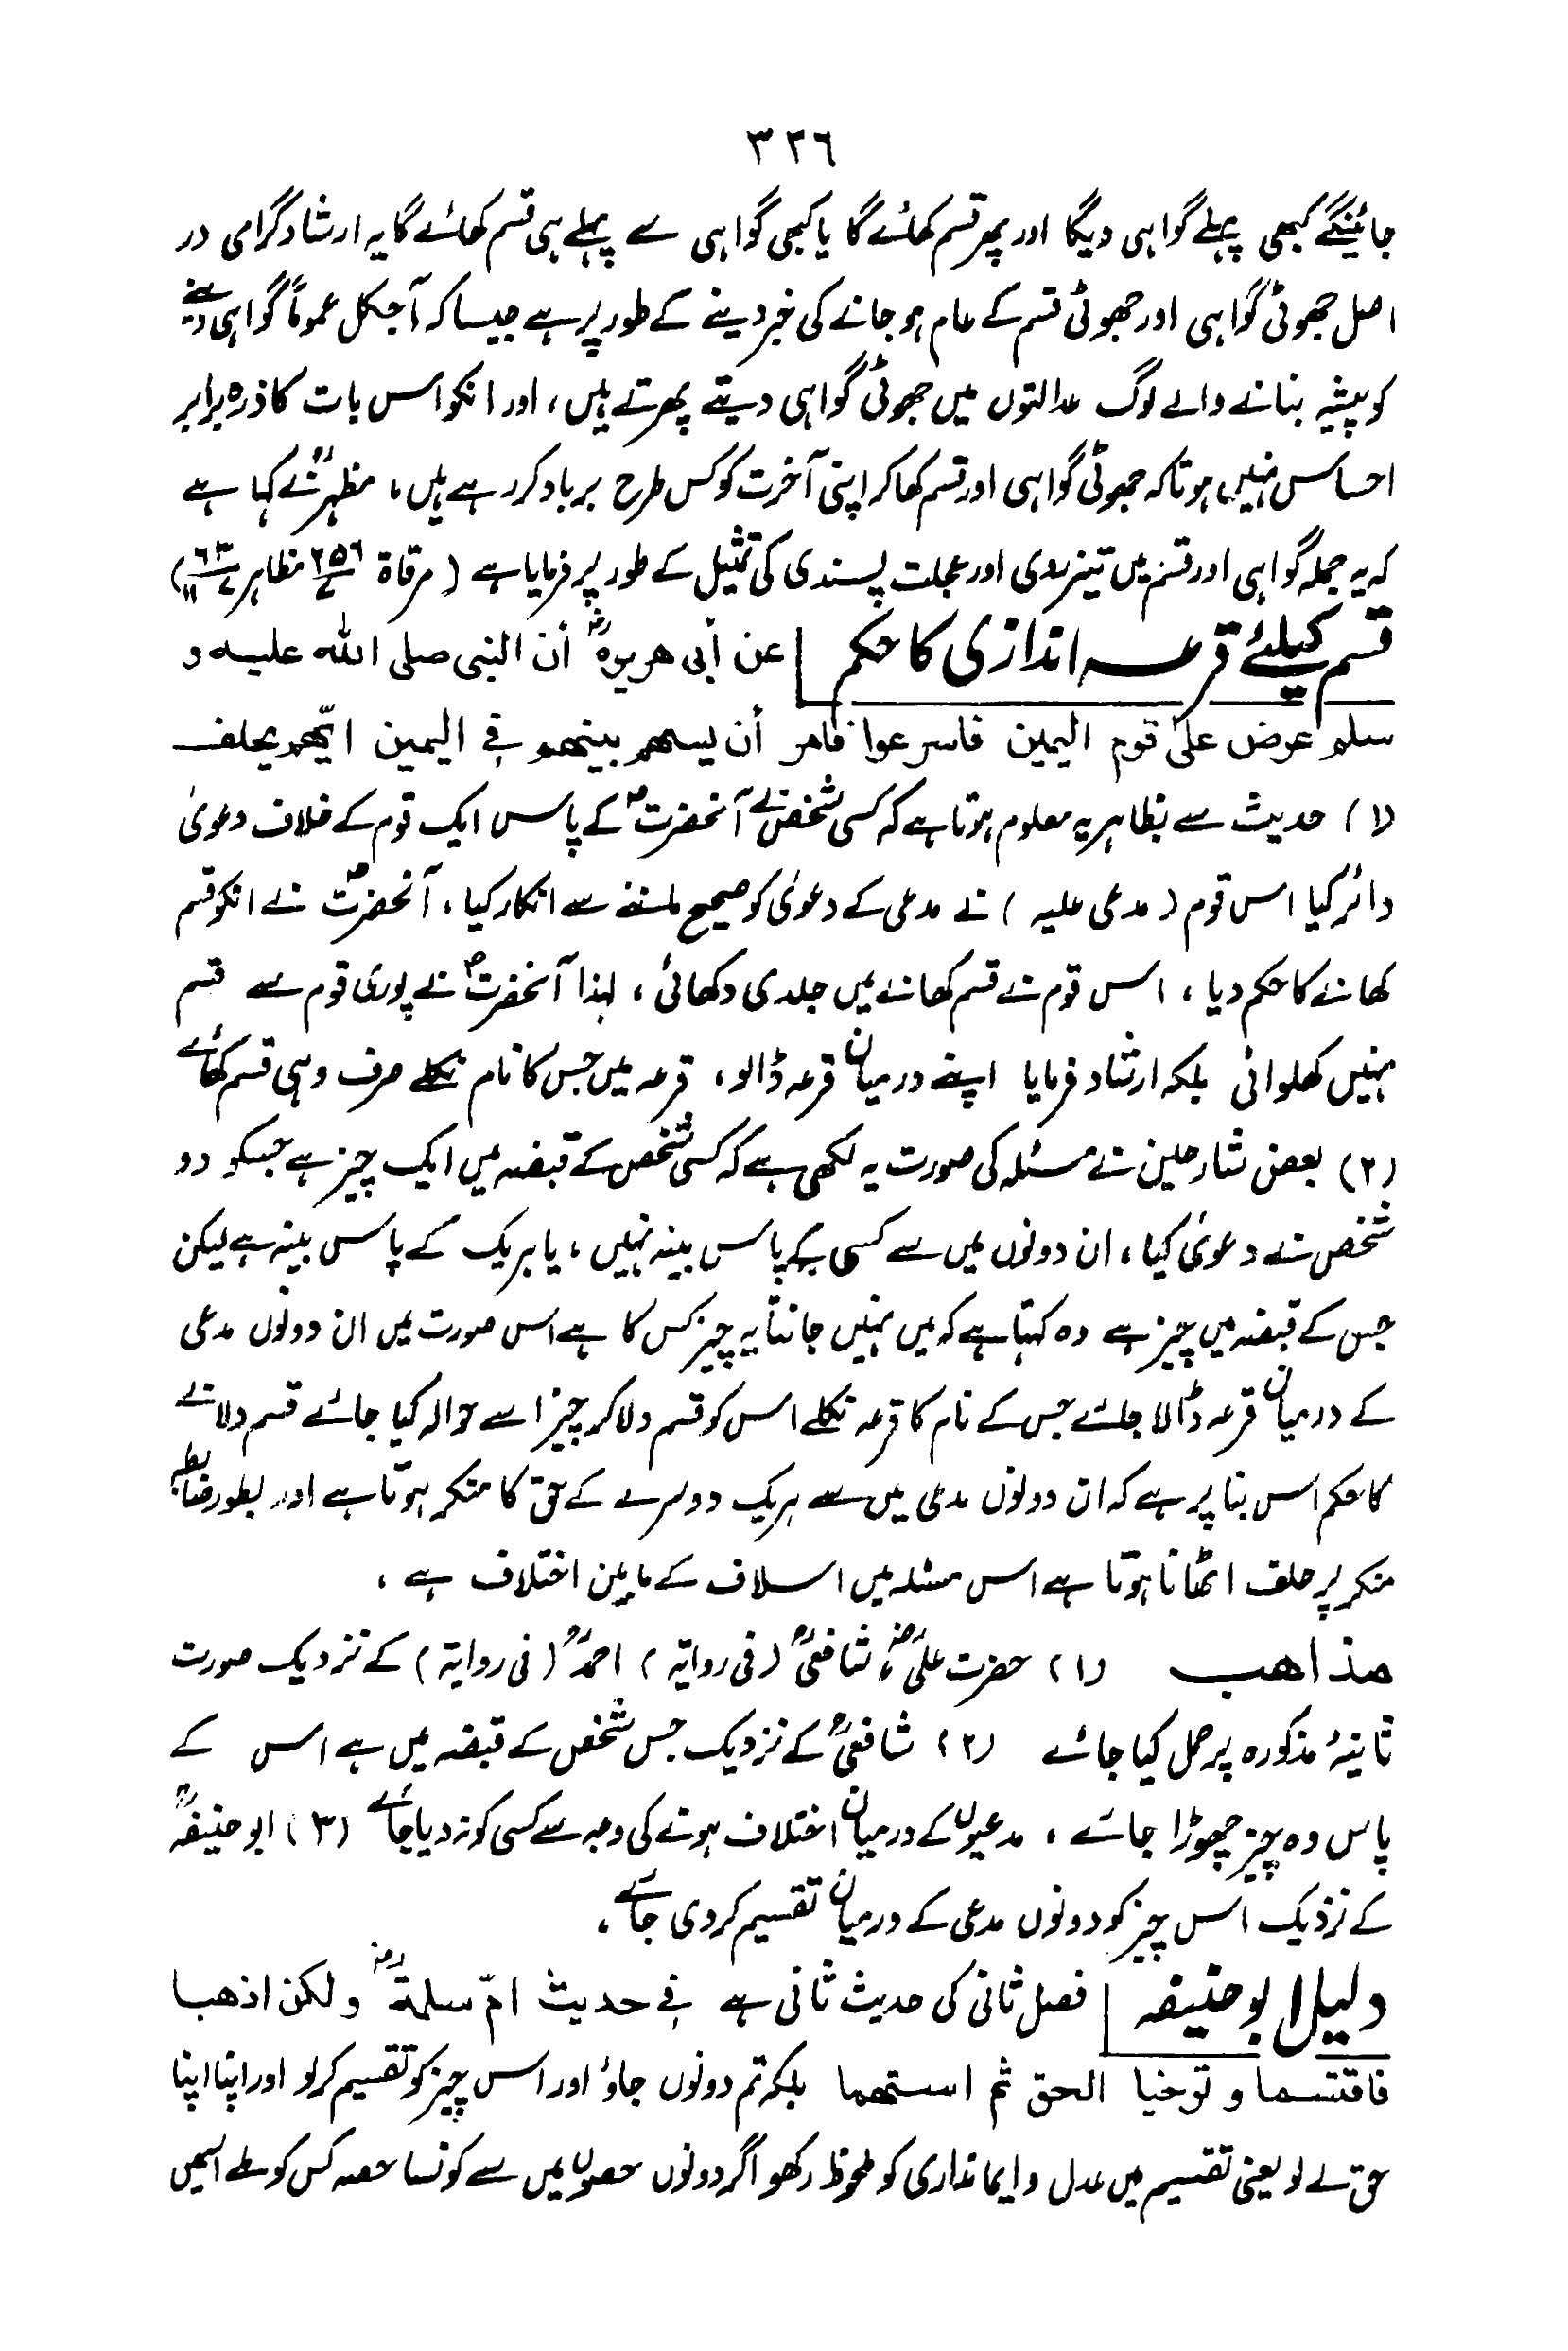 ٣٢٦
جائینگے کبھی پہلے گواہی دیگا اور پھر قسم کھائے گا یا کبھی گواہی سے پہلے ہی قسم کھائے گا یہ ارشاد گرامی در
اصل جھوٹی گواہی اور جھوٹی قسم کے عام ہو جانے کی خبر دینے کے طور پر ہے جیسا کہ آجکل عموماً گواہی دینے
کو پیشہ بنانے والے لوگ عدالتوں میں جھوٹی گواہی دیتے پھرتے ہیں، اور انکو اس بات کا ذرہ برابر
احساس نہیں ہوتا کہ جھوٹی گواہی اور قسم کھا کر اپنی آخرت کو کس طرح برباد کر رہے ہیں، مظہرؒ نے کہا ہے
کہ یہ جملہ گواہی اور قسم میں تیز روی اور عجلت پسندی کی تمثیل کے طور پر فرمایا ہے (مرقاۃ ٢٥٦/٧ مظاہر ٦٣/٤ ۱۱)
قسم کیلئے قرعہ اندازی کا حکم | عن أبی هریرةؓ أن النبی صلی الله علیه و
سلم عرض علی قوم الیمین فاسرعوا فامر أن یسهم بینهم فی الیمین ایّهم یحلف
(۱) حدیث سے بظاہر یہ معلوم ہوتا ہے کہ کسی شخص نے آنحضرتؐ کے پاس ایک قوم کے خلاف دعویٰ
دائر کیا اس قوم (مدعی علیہ) نے مدعی کے دعویٰ کو صحیح ماننے سے انکار کیا، آنحضرتؐ نے انکو قسم
کھانے کا حکم دیا، اس قوم نے قسم کھانے میں جلدی دکھائی، لہذا آنحضرتؐ نے پوری قوم سے قسم
نہیں کھلوائی بلکہ ارشاد فرمایا اپنے درمیان قرعہ ڈالو، قرعہ میں جس کا نام نکلے صرف وہی قسم کھائے
(۲) بعض شارحین نے مسئلہ کی صورت یہ لکھی ہے کہ کسی شخص کے قبضہ میں ایک چیز ہے جسکو دو
شخص نے دعویٰ کیا، ان دونوں میں سے کسی کے پاس بینہ نہیں، یا ہریک کے پاس بینہ ہے لیکن
جس کے قبضہ میں چیز ہے وہ کہتا ہے کہ میں نہیں جانتا یہ چیز کس کا ہے اس صورت میں ان دونوں مدعی
کے درمیان قرعہ ڈالا جائے جس کے نام کا قرعہ نکلے اس کو قسم دلا کر چیز اسے حوالہ کیا جائے قسم دلانے
کا حکم اس بنا پر ہے کہ ان دونوں مدعی میں سے ہریک دوسرے کے حق کا منکر ہوتا ہے اور بطور ضابطہ
منکر پر حلف اٹھانا ہوتا ہے اس مسئلہ میں اسلاف کے مابین اختلاف ہے،
مذاهب (۱) حضرت علیؓ، شافعیؒ (فی روایۃ) احمدؒ (فی روایۃ) کے نزدیک صورت
ثانیۂ مذکورہ پر عمل کیا جائے (۲) شافعیؒ کے نزدیک جس شخص کے قبضہ میں ہے اس کے
پاس وہ چیز چھوڑا جائے، مدعیوں کے درمیان اختلاف ہونے کی وجہ سے کسی کو نہ دیا جائے (۳) ابو حنیفہؒ
کے نزدیک اس چیز کو دونوں مدعی کے درمیان تقسیم کر دی جائے،
دلیل ابو حنیفہ | فصل ثانی کی حدیث ثانی ہے فی حدیث امّ سلمةؓ ولکن اذهبا
فاقتسما و توخیا الحق ثم استهما بلکہ تم دونوں جاؤ اور اس چیز کو تقسیم کر لو اور اپنا اپنا
حق لے لو یعنی تقسیم میں عدل و ایمانداری کو ملحوظ رکھو اگر دونوں حصوں میں سے کونسا حصہ کس کو ملے اسمیں